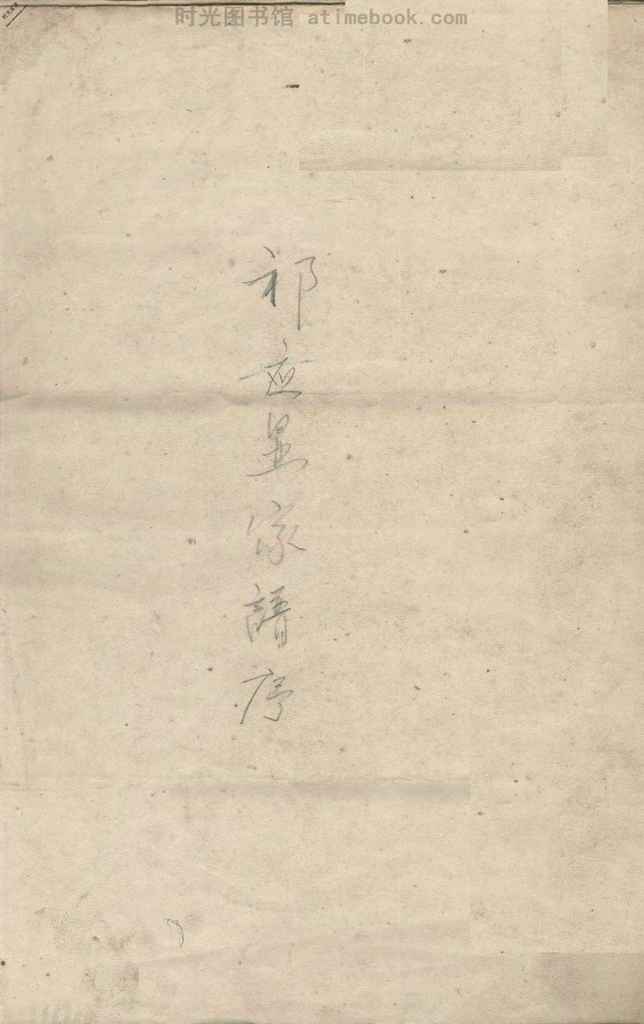 时光图书馆 atimebook.com
祁应显家譜序